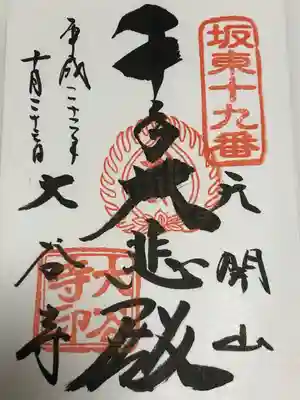 坂東十九番
天開山
千手大悲殿
大谷寺
平成二十二年
十月二十
大谷
寺印